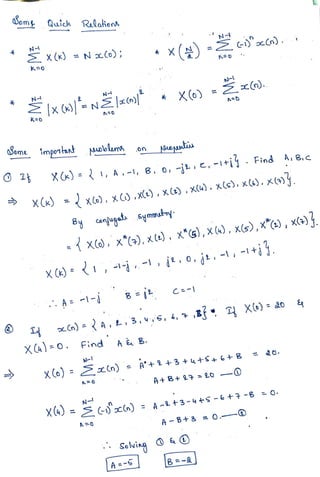 Some Quick Relations
* N-1 Σ k=0 X(k) = N x(0) ; * X(N/2) = N-1 Σ n=0 (-1)^n x(n).
* N-1 Σ k=0 |X(k)|^2 = N Σ |x(n)|^2 * X(0) = N-1 Σ n=0 x(n).
Some important problems on properties
① If X(k) = { 1, A, -1, B, 0, -j2, C, -1+j }. Find A, B, C
⇒ X(k) = { X(0), X(1), X(2), X(3), X(4), X(5), X(6), X(7) }.
By conjugate symmetry.
= { X(0), X*(7), X(2), X*(5), X(4), X(5), X*(2), X(7) }.
X(k) = { 1, -1-j, -1, j2, 0, j2, -1, -1+j }.
∴ A = -1-j B = j2 C = -1
② If x(n) = { A, 2, 3, 4, 5, 6, 7, B }. If X(0) = 20 &
X(4) = 0. Find A & B.
⇒ X(0) = N-1 Σ n=0 x(n) = A+2+3+4+5+6+B = 20.
A+B+27 = 20 —①
X(4) = N-1 Σ n=0 (-1)^n x(n) = A-2+3-4+5-6+7-B = 0.
A-B+3 = 0. —②
∴ Solving ① & ②
A = -5 B = -2